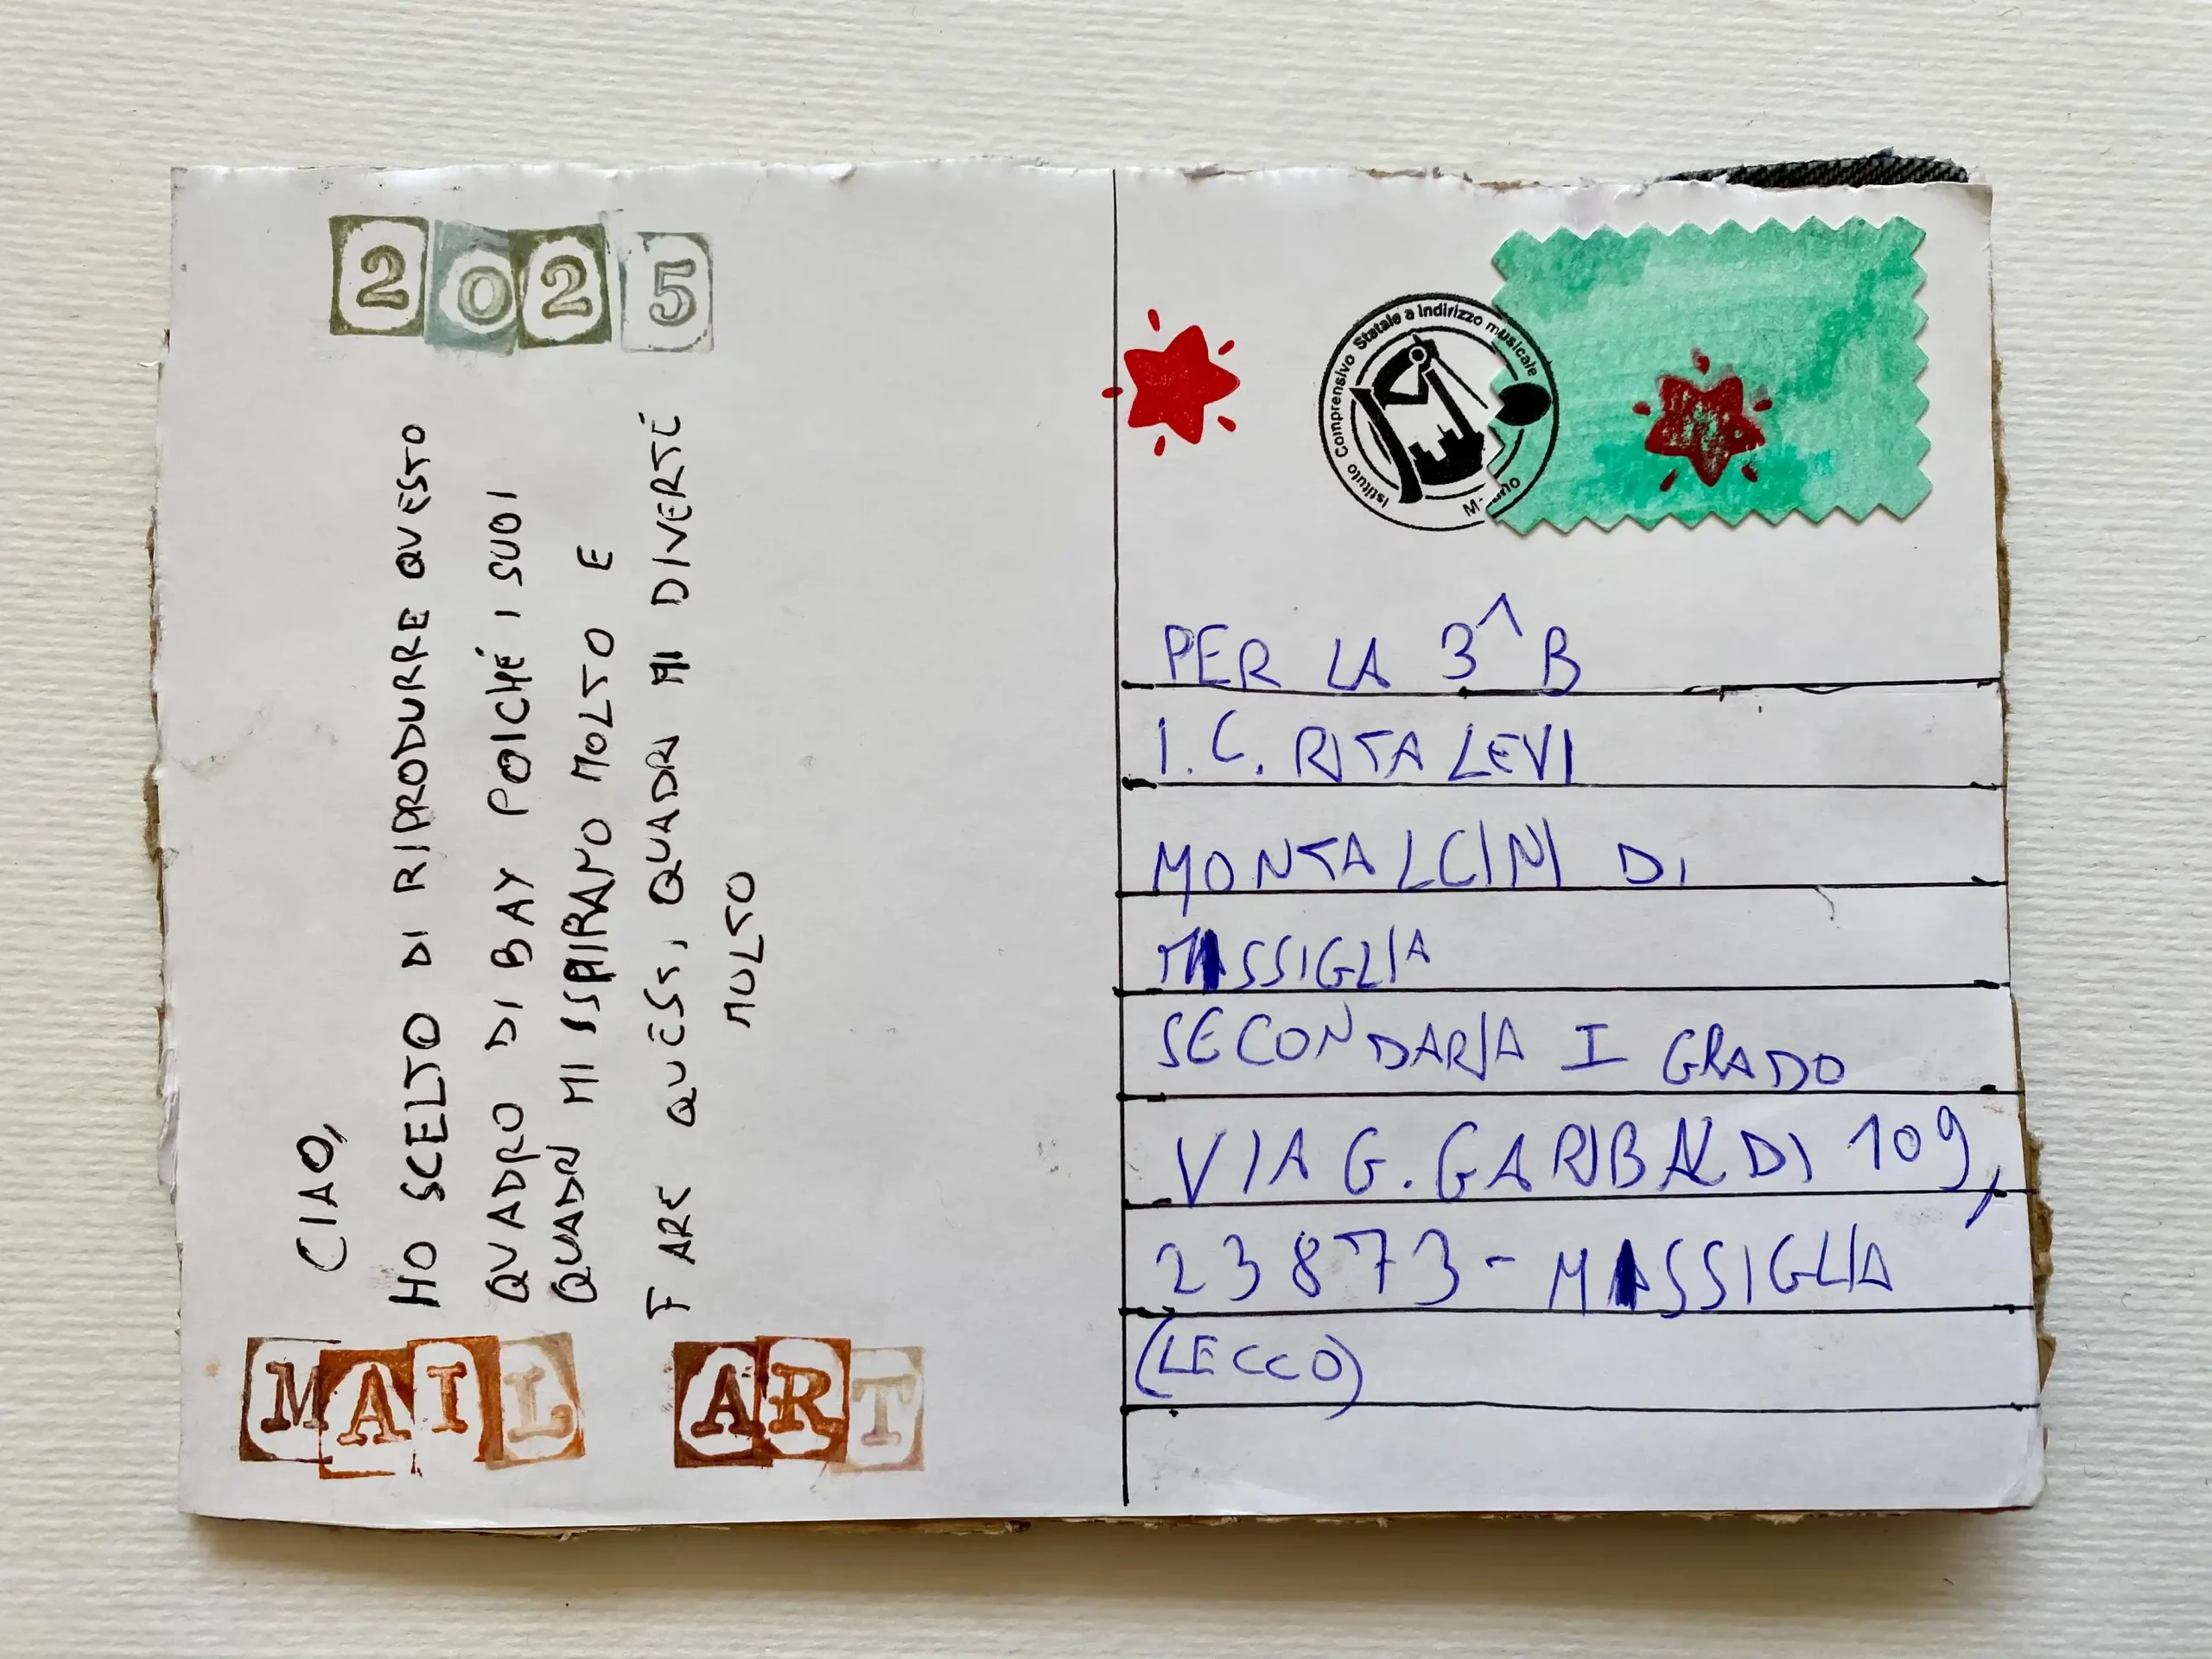 2025
CIAO,
HO SCELTO DI RIPRODURRE QUESTO
QUADRO DI BAY POICHÉ I SUOI
QUADRI MI ISPIRANO MOLTO E
FARE QUESTI QUADRI MI DIVERTE
MOLTO
MAIL ART
Istituto Comprensivo Statale a Indirizzo musicale
PER LA 3^B
I.C. RITA LEVI
MONTALCINI DI
MASSIGLIA
SECONDARIA I GRADO
VIA G. GARIBALDI 109,
23873 - MASSIGLIA
(LECCO)